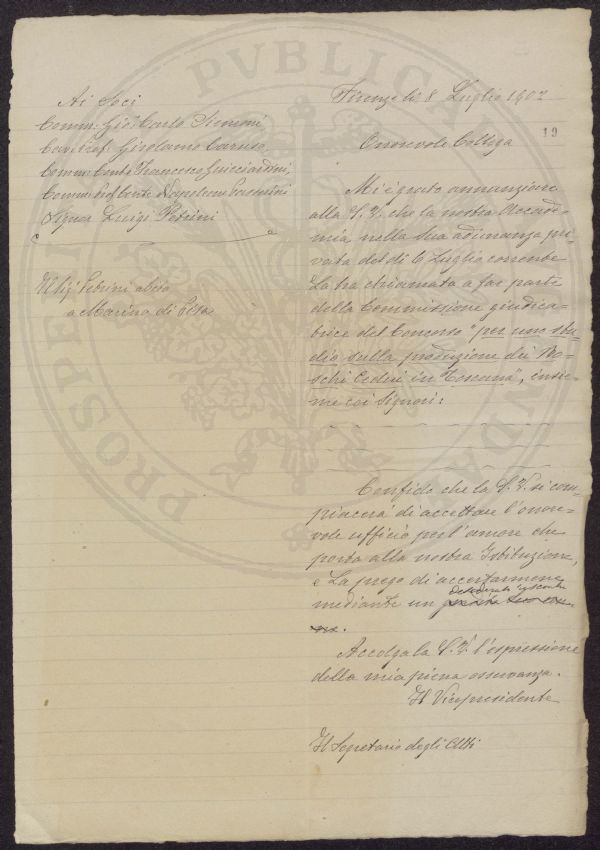 Ai Soci
Comm. Gio: Carlo Siemoni
Cav. Prof. Girolamo Caruso
Comm. Conte Francesco Guicciardini,
Comm. Prof. Conte Napoleone Passerini
Signor Luigi Petrini
Il Sig. Petrini abita
a Marina di Pisa
Firenze li 8 Luglio 1902
19
Onorevole Collega
Mi è grato annunziare
alla S. V. che la nostra Accade-
mia, nella sua adunanza pri-
vata del dì 6 Luglio corrente
La ha chiamata a far parte
della Commissione giudica-
trice del Concorso "per uno stu-
dio sulla produzione dei Bo-
schi Cedui in Toscana", insie-
me coi Signori:
Confido che la S. V. si com-
piacerà di accettare l'onore-
vole ufficio per l'amore che
porta alla nostra Istituzione,
e La prego di accertarmene
mediante un
Accolga la S. V. l'espressione
della mia piena osservanza.
Il Vicepresidente
Il Segretario degli Atti
PROSPERITATI PVBLICAE